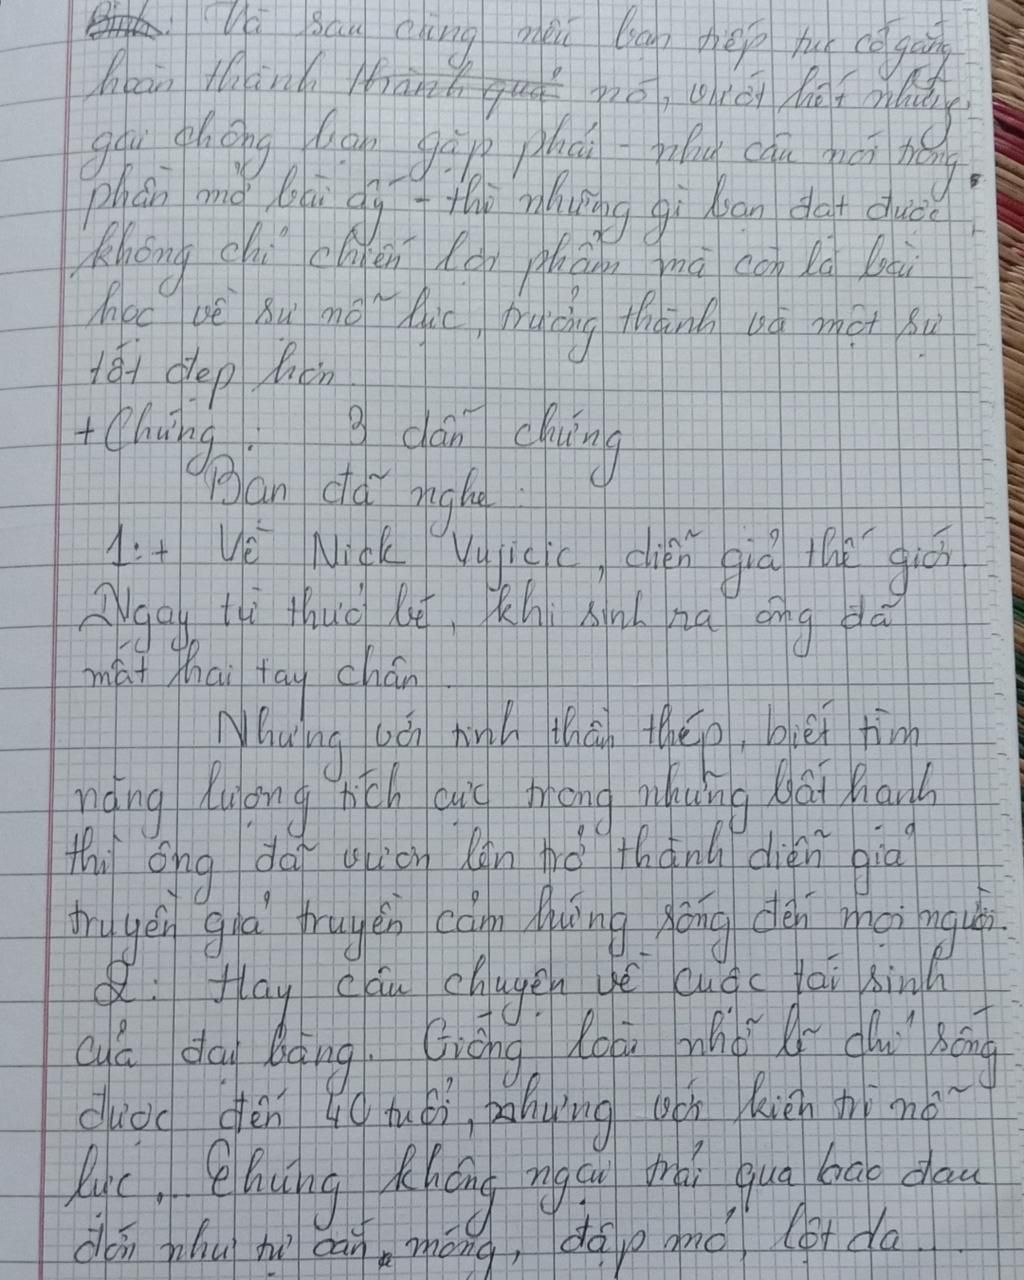 Và sau cùng nếu bạn tiếp tục cố gắng
hoàn thành thành quả nó, vượt hết những
gai chông bạn gặp phải - như câu nói trong
phần mở bài ấy - thì những gì bạn đạt được
không chỉ chiến lợi phẩm mà còn là bài
học về sự nỗ lực, trưởng thành và một sự
tốt đẹp hơn
+ Chứng : 3 dẫn chứng
Bạn đã nghe :
1: + Về Nick Vujicic, diễn giả thế giới.
Ngay từ thuở bé, khi sinh ra ông đã
mất hai tay chân.
Nhưng với tinh thần thép, biết tìm
năng lượng tích cực trong những bất hạnh
thì ông đã vươn lên trở thành diễn giả
truyền giả truyền cảm hứng sống đến mọi người.
2: Hay câu chuyện về cuộc tái sinh
của đại bàng. Giống loài nhỡ lẽ chỉ sống
được đến 40 tuổi, nhưng với kiên trì nỗ
lực,.. Chúng không ngại trải qua bao đau
đớn như tự cắn móng, đập mỏ, lột da...